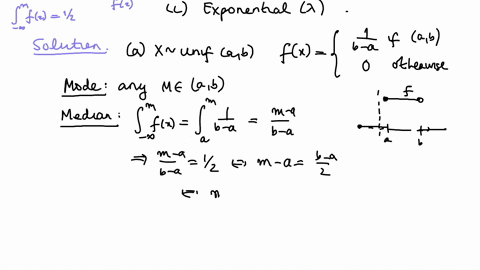 ∫_{-∞}^{m} f(x) = 1/2
f(x)
(c) Exponential (λ) .
Solution . (a) X ~ unif (a,b) f(x) = { 1/(b-a) if (a,b)
0 otherwise
Mode : any M ∈ (a,b)
Median : ∫_{-∞}^{m} f(x) = ∫_{a}^{m} 1/(b-a) = (m-a)/(b-a)
f
a b
⇒ (m-a)/(b-a) = 1/2 ⇔ m-a = (b-a)/2
⇔